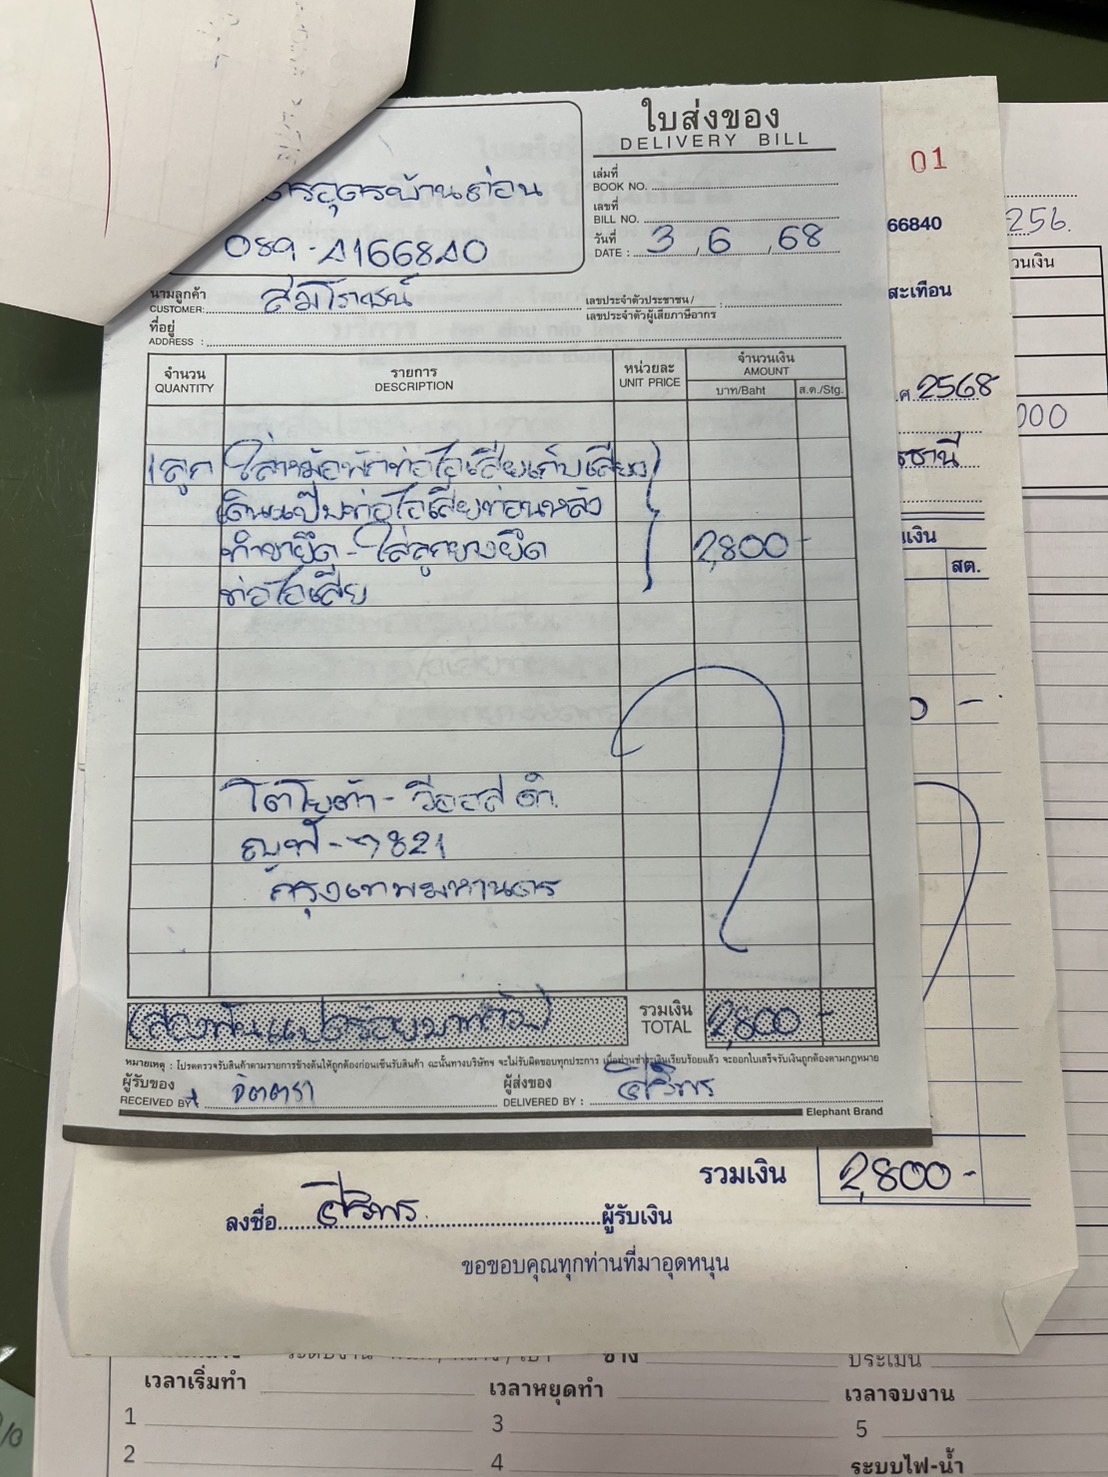 ใบส่งของ
DELIVERY BILL
เล่มที่
BOOK NO.
เลขที่
BILL NO.
วันที่
DATE : 3 / 6 / 68
อุดรบ้านต่อน
089-4166840
นามลูกค้า
CUSTOMER: สมโภชน์
เลขประจำตัวประชาชน /
เลขประจำตัวผู้เสียภาษีอากร
ที่อยู่
ADDRESS :
จำนวน รายการ หน่วยละ จำนวนเงิน
QUANTITY DESCRIPTION UNIT PRICE AMOUNT
บาท/Baht ส.ต./Stg.
1 ลูก ใส่หม้อพักท่อไอเสียเก็บเสียง
เดินแป๊บท่อไอเสียท่อนหลัง
ทำขายึด - ใส่ลูกยางยึด 2,800 -
ท่อไอเสีย
โตโยต้า - วีออส ดำ
7821
กรุงเทพมหานคร
(สองพันแปดร้อยบาทถ้วน)
รวมเงิน
TOTAL 2,800 -
หมายเหตุ : โปรดตรวจรับสินค้าตามรายการข้างต้นให้ถูกต้องก่อนเซ็นรับสินค้า ฉะนั้นทางบริษัทฯ จะไม่รับผิดชอบทุกประการ เมื่อท่านชำระเงินเรียบร้อยแล้ว จะออกใบเสร็จรับเงินถูกต้องตามกฎหมาย
ผู้รับของ
RECEIVED BY จิตตรา
ผู้ส่งของ
DELIVERED BY : ศิริพร
Elephant Brand
01
66840
สะเทือน
ศ 2568
ธานี
เงิน
สต.
256.
วนเงิน
000
รวมเงิน 2,800 -
ลงชื่อ ศิริพร ผู้รับเงิน
ขอขอบคุณทุกท่านที่มาอุดหนุน
ช่าง
ประเมิน
เวลาเริ่มทำ เวลาหยุดทำ เวลาจบงาน
1 3 5
2 4 ระบบไฟ-น้ำ